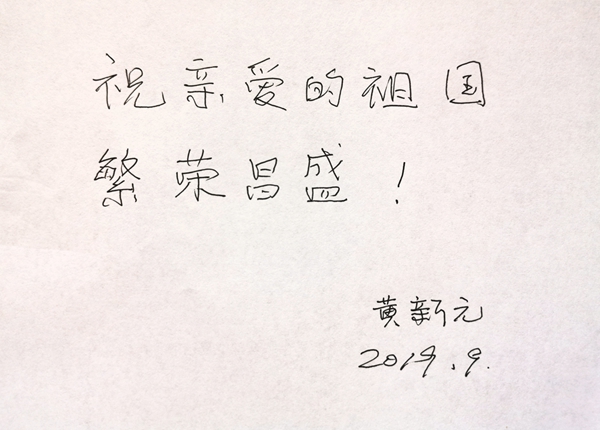 祝亲爱的祖国
繁荣昌盛！
黄新元
2019.9.